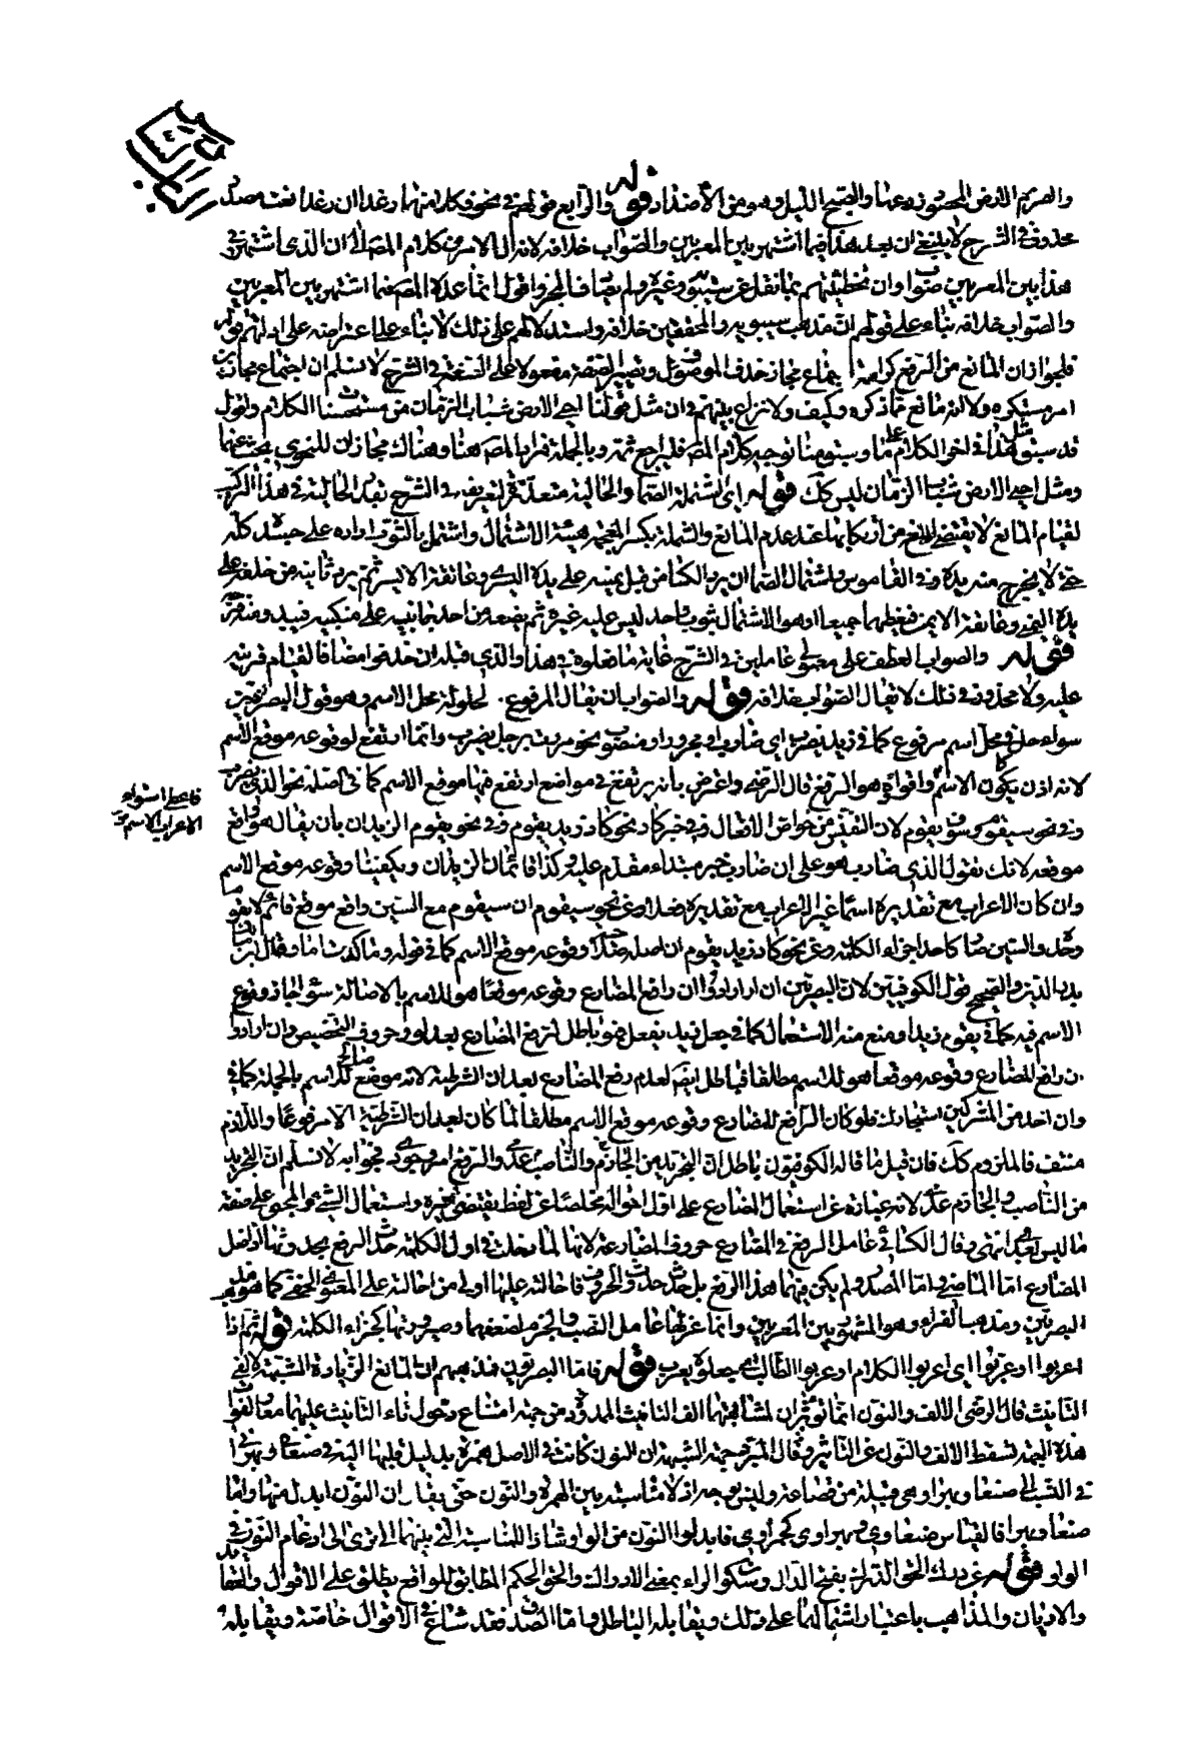 والصريم الارض المحصود زرعها والصبح الليل وهو من الأضداد قوله والرابع قولهم في نحو فكلا منها رغدا ان رغدا نعت مصدر
محذوف في الشرح لا ينبغي ان يعد هذا فيما اشتهر بين المعربين والصواب خلافه لانه الامر من كلام المص الى ان الذي اشتهر في
هذا بين المعربين صواب وان تخطئتهم بما نقل عن سيبويه وغيره ولم يضاف المجر واقول انما عده المص فيما اشتهر بين المعربين
والصواب خلافه بناء على قولهم ان مذهب سيبويه والمحققين خلافه واستدلالهم على ذلك لا بناء على اعتراضه على ادلتهم قوله
فلجواز ان المانع من الرفع كراهة اجتماع مجاز حذف الموصوف وتصيير الصفة مفعولا على السعة في الشرح لا نسلم ان اجتماع مجازين
امر مستكره ولا انه مانع مما ذكره وكيف ولا نزاع بينهم في ان مثل قولنا احيى الارض شباب الزمان من مستحسنات الكلام واقول
قد سبق مثل هذا في اخر الكلام على ما وسبق منا توجيه كلام المص فليرجع ثمه وبالجملة فمراد المص هنا وهناك مجازان للنحوي بحث عنهما
ومثل احيى الارض شباب الزمان ليس كك قوله اي الشملة الصماء والحالية متعذرة لتعريفه في الشرح تعذر الحالية في هذا التركيب
لقيام المانع لا يقتضي المنع من ارتكابها عند عدم المانع والشملة بكسر المعجمة هيئة الاشتمال واشتمل بالثوب اداره على جسده كله
حتى لا يخرج منه يده وفي القاموس واشتمال الصماء ان يرد الكساء من قبل يمينه على يده اليسرى وعاتقه الايسر ثم يرده ثانية من خلفه على
يده اليمنى وعاتقه الايمن فيغطيهما جميعا او هو الاشتمال بثوب واحد ليس عليه غيره ثم يضعه من احد جانبيه على منكبيه فيبدو منه فرجه
قوله والصواب العطف على معمولي عاملين في الشرح غاية ما فعلوه في هذا والذي قبله ان حذفوا مضافا لقيام قرينة
عليه ولا محذور في ذلك لا يقال الصواب خلافه قوله والصواب ان يقال المرفوع لحلوله محل الاسم وهو قول البصريين
سواء حل محل اسم مرفوع كما في زيد يضرب اي ضارب او مجرور او منصوب نحو مررت برجل يضرب وانما ارتفع لوقوعه موقع الاسم
لانه اذن يكون كالاسم واقواه هو الرفع قال الرضي واعترض بانه يرتفع في مواضع لا يقع فيها موقع الاسم كما في الصلة نحو الذي يضرب
وفي نحو سيقوم وسوف يقوم لان التنفيس من خواص الافعال وفي خبر كاد نحو كاد زيد يقوم وفي نحو يقوم الزيدان بان يقال هو واقع
موقعه لانك تقول الذي ضارب هو على ان ضارب خبر مبتداء مقدم عليه وكذا قائمان الزيدان ويكفينا وقوعه موقع الاسم
وان كان الاعراب مع تقديره اسما غير الاعراب مع تقديره فعلا وعن نحو سيقوم ان سيقوم مع السين واقع موقع قائم لا يقوم
وحده والسين صار كاحد اجزاء الكلمة وعن نحو كاد زيد يقوم ان اصله صلاحية وقوعه موقع الاسم كما في قوله وما كدت آئبا وقال
بدر الدين والصحيح قول الكوفيين لان البصريين ان ارادوا ان رافع المضارع وقوعه موقعا هو للاسم بالاصالة سواء جاز وقوع
الاسم فيه كما في يقوم زيد او منع منه الاستعمال كما في جعل زيد يفعل فهو باطل لرفع المضارع بعد لو وحروف التحضيض وان ارادوا
ان رافع المضارع وقوعه موقعا هو للاسم مطلقا فباطل ايضا لعدم رفع المضارع بعد ان الشرطية لانه موضع صالح للاسم بالجملة كما في
وان احد من المشركين استجارك فلو كان الرافع للمضارع وقوعه موقع الاسم مطلقا لما كان بعد ان الشرطية الا مرفوعا واللازم
منتف فالملزوم كك فان قيل ما قاله الكوفيون باطل لان التجريد من الجازم والناصب عدمي والرفع امر وجودي فجوابه لا نسلم ان التجريد
من الناصب والجازم عدمي لانه عبارة عن استعمال المضارع على اول احواله مخلصا عن لفظ يقتضي تغييره واستعمال الشيء والمجيء على صفة
ما ليس بعدمي انتهى وقال الكسائي عامل الرفع في المضارع حروف المضارعة لانها لما دخلت في اول الكلمة حدث الرفع بحدوثها اذ اصل
المضارع اما الماضي واما المصدر ولم يكن فيهما هذا الرفع بل حدث حدوث الحروف فاحالته عليها اولى من احالته على المعنوي الخفي كما هو مذهب
البصريين ومذهب الفراء وهو المشهور بين المعربين وانما عزلها عامل النصب والجزم لضعفهما وصيرورتها كجزء الكلمة قوله ثم اذا
اعربوا او عربوا اي اعربوا الكلام او عربوا الطالب جعلوه يعرب قوله فاما البصريون فمذهبهم ان المانع الزيادة المشبهة لالفي
التانيث قال الرضي الالف والنون انما تؤثران لمشابهتهما الف التانيث الممدودة من جهة امتناع دخول تاء التانيث عليهما معا بفوات
هذه الجهة تسقط الالف والنون عن التاثير وقال المبرد جهة الشبه ان النون كانت في الاصل همزة بدليل قلبها اليه في صنعاني وبهراني
في النسب الى صنعاء وبهراء وهي قبيلة من قضاعة وليس بوجه اذ لا مناسبة بين الهمزة والنون حتى يقال ان النون ابدل منها واما
صنعاء وبهراء فالقياس صنعاوي وبهراوي كحمراوي فابدلوا النون من الواو شاذا للمناسبة التي بينهما الا ترى الى ادغام النون في
الواو قوله عن درك الحق الدرك بفتح الدال وسكون الراء بمعنى الادراك والحق الحكم المطابق للواقع يطلق على الاقوال والعقائد
والاديان والمذاهب باعتبار اشتمالها على ذلك ويقابله الباطل واما الصدق فقد شاع في الاقوال خاصة ويقابله